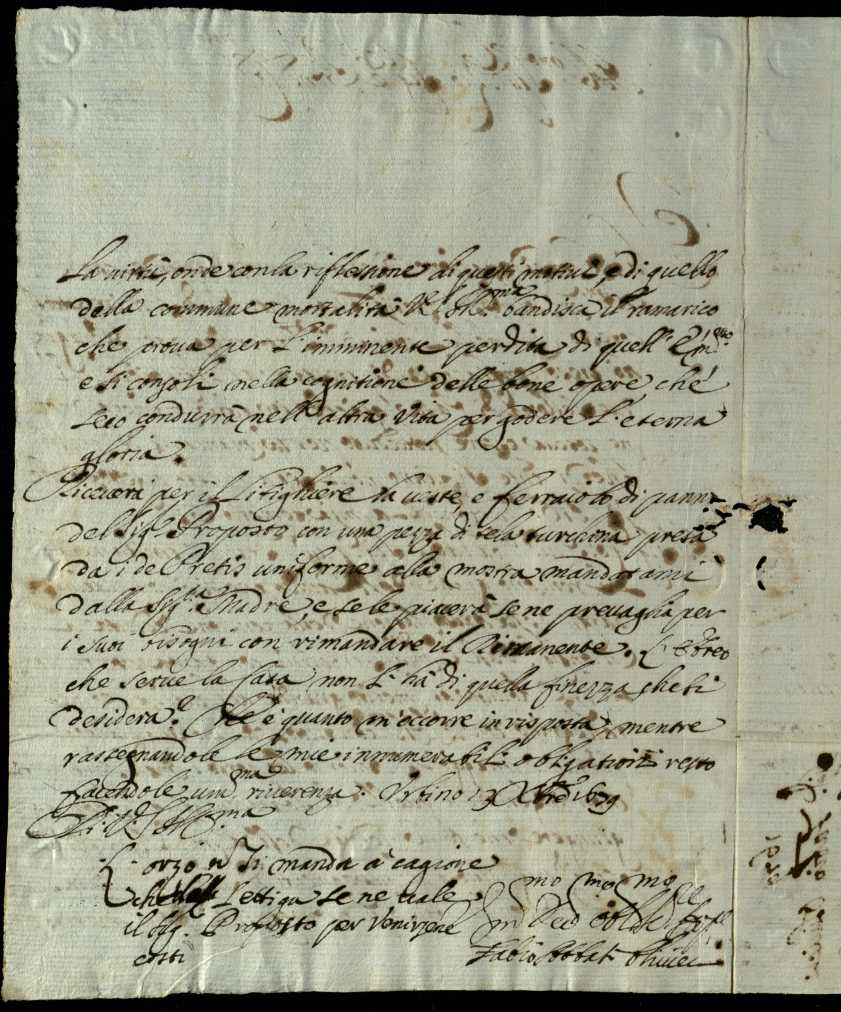 la uirtù, onde con la riflessione di questi motiui, e di quello
della commune mortalità V. S. Ill.ma bandisca il ramarico
che proua per l'imminente perdita di quell'
e si consoli nella cognitione delle bone opere, che
seco condurrà nell'altra vita per godere l'eterna
gloria.
Riceuerà per il Litighiere la ueste, e ferraiolo di pann
del Sig.r Proposto con una pezza di tela turchina presa
da i de Pretis uniforme alla mostra mandatami
dalla Sig.ra Madre, e se le piacerà se ne preuaglia per
i suoi bisogni con rimandare il Rimanente. L'Ebreo
che serue la Casa non l'hà di quella finezza, che si
desidera. Che è quanto m'occorre in risposta, mentre
rassegnandole le mie innumerabili obligationi resto
facendole um.ma riuerenza. Vrbino 1679
Di V. S. Ill.ma
L'orzo n si manda à cagione
che Lettiga se ne uale
il Sig. Proposto per venirsene
costi
Fabio Abbati Oliuieri